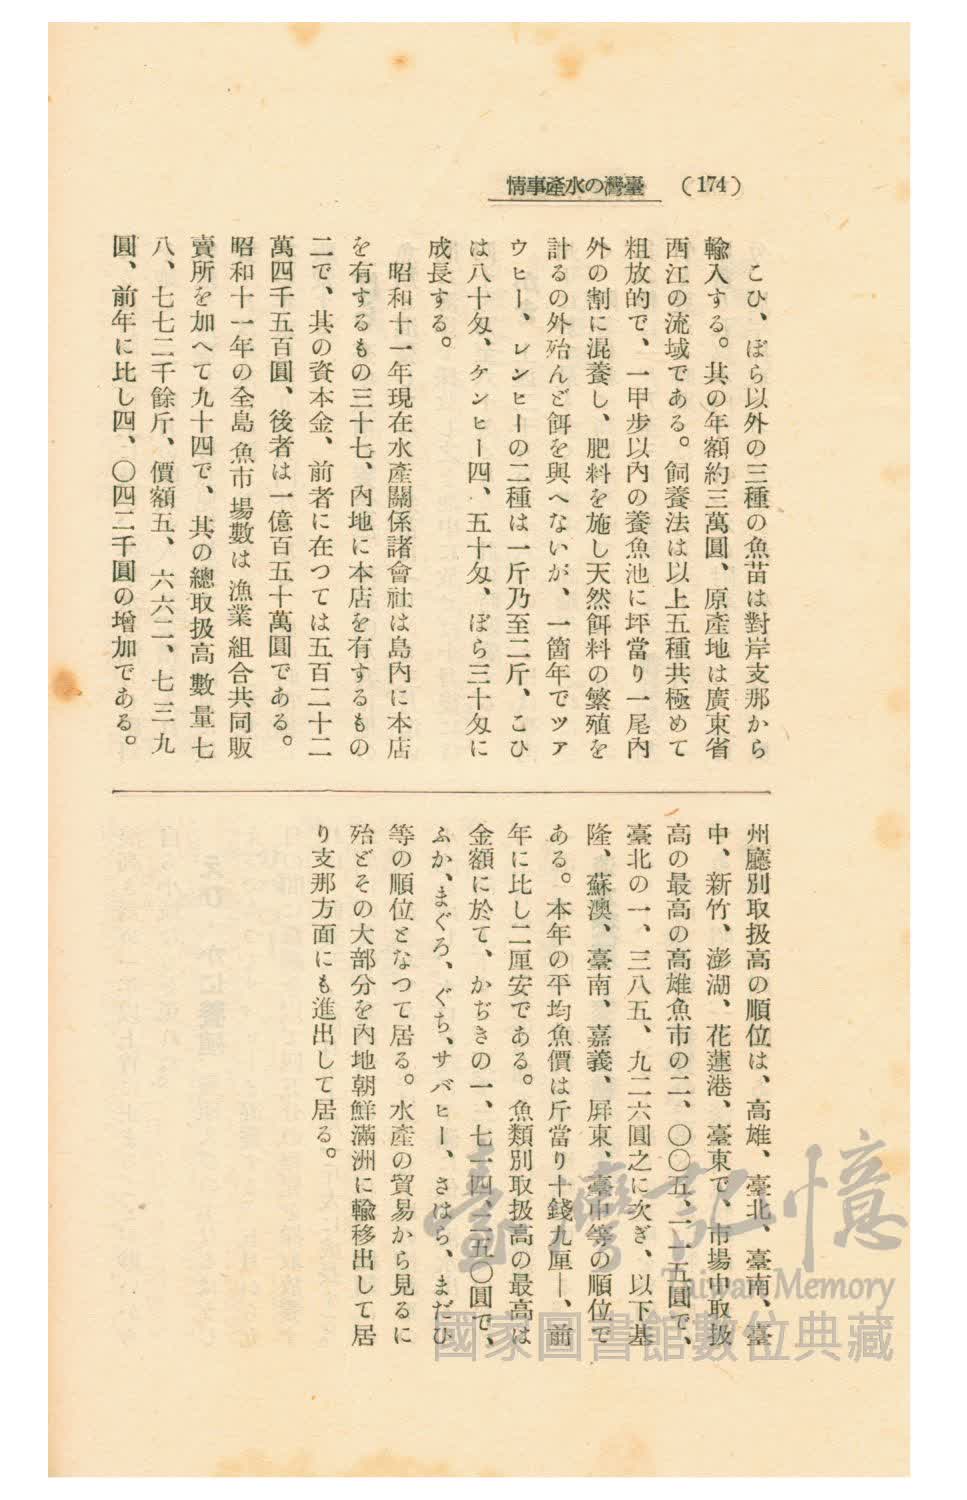 情事產水の灣臺 (174)
こひ、ぼら以外の三種の魚苗は對岸支那から
輸入する。其の年額約三萬圓、原產地は廣東省
西江の流域である。飼養法は以上五種共極めて
粗放的で、一甲步以內の養魚池に坪當り一尾內
外の割に混養し、肥料を施し天然餌料の繁殖を
計るの外殆んど餌を與へないが、一箇年でツア
ウヒー、レンヒーの二種は一斤乃至二斤、こひ
は八十匁、ケンヒー四、五十匁、ぼら三十匁に
成長する。
昭和十一年現在水產關係諸會社は島內に本店
を有するもの三十七、內地に本店を有するもの
二で、其の資本金、前者に在つては五百二十二
萬四千五百圓、後者は一億百五十萬圓である。
昭和十一年の全島魚市場數は漁業組合共同販
賣所を加へて九十四で、其の總取扱高數量七
八、七七二千餘斤、價額五、六六二、七三九
圓、前年に比し四、〇四二千圓の增加である。
州廳別取扱高の順位は、高雄、臺北、臺南、臺
中、新竹、澎湖、花蓮港、臺東で、市場中取扱
高の最高の高雄魚市の二、〇〇五、二一五圓で、
臺北の一、三八五、九二六圓之に次ぎ、以下基
隆、蘇澳、臺南、嘉義、屏東、臺中等の順位で
ある。本年の平均魚價は斤當り十錢九厘—、前
年に比し二厘安である。魚類別取扱高の最高は
金額に於て、かぢきの一、七一四、二五〇圓で、
ふか、まぐろ、ぐち、サバヒー、さはら、まだひ
等の順位となつて居る。水產の貿易から見るに
殆どその大部分を內地朝鮮滿洲に輸移出して居
り支那方面にも進出して居る。
臺灣記憶
Taiwan Memory
國家圖書館數位典藏